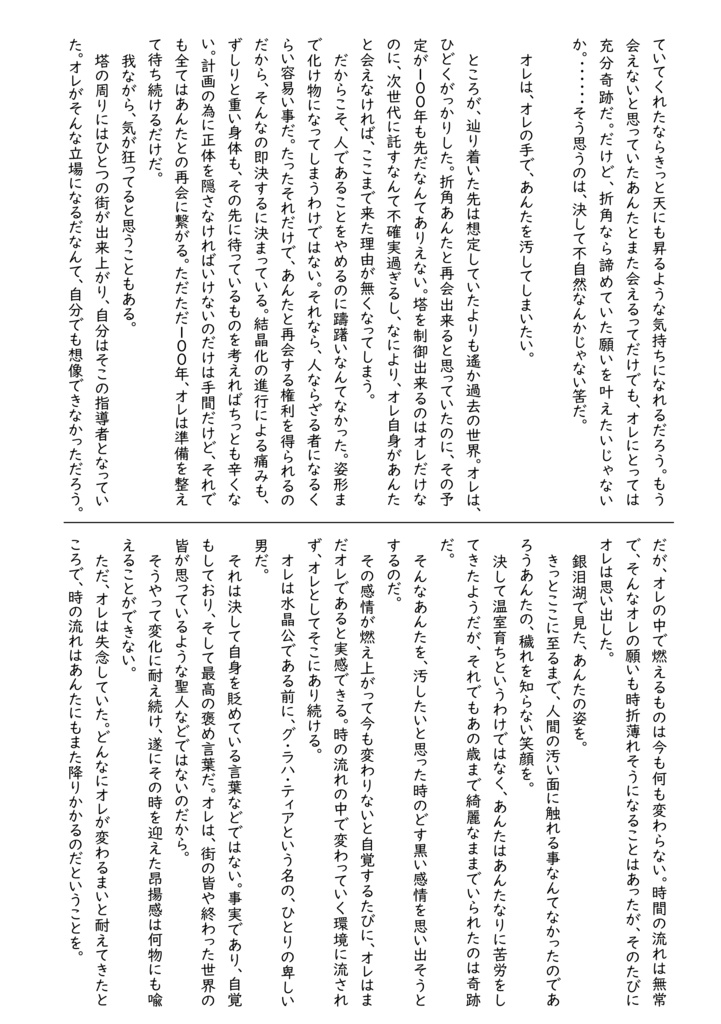 ていてくれたならきっと天にも昇るような気持ちになれるだろう。もう
会えないと思っていたあんたとまた会えるってだけでも、オレにとっては
充分奇跡だ。だけど、折角なら諦めていた願いを叶えたいじゃない
か。・・・・・そう思うのは、決して不自然なんかじゃない筈だ。
オレは、オレの手で、あんたを汚してしまいたい。
ところが、辿り着いた先は想定していたよりも遙か過去の世界。オレは、
ひどくがっかりした。折角あんたと再会出来ると思っていたのに、その予
定が100年も先だなんてありえない。塔を制御出来るのはオレだけな
のに、次世代に託すなんて不確実過ぎるし、なにより、オレ自身があんた
と会えなければ、ここまで来た理由が無くなってしまう。
だからこそ、人であることをやめるのに躊躇いなんてなかった。姿形ま
で化け物になってしまうわけではない。それなら、人ならざる者になるく
らい容易い事だ。たったそれだけで、あんたと再会する権利を得られるの
だから、そんなの即決するに決まっている。結晶化の進行による痛みも、
ずしりと重い身体も、その先に待っているものを考えればちっとも辛くな
い。計画の為に正体を隠さなければいけないのだけは手間だけど、それで
も全てはあんたとの再会に繋がる。ただただ100年、オレは準備を整え
て待ち続けるだけだ。
我ながら、気が狂ってると思うこともある。
塔の周りにはひとつの街が出来上がり、自分はそこの指導者となってい
た。オレがそんな立場になるだなんて、自分でも想像できなかっただろう。
だが、オレの中で燃えるものは今も何も変わらない。時間の流れは無常
で、そんなオレの願いも時折薄れそうになることはあったが、そのたびに
オレは思い出した。
銀泪湖で見た、あんたの姿を。
きっとここに至るまで、人間の汚い面に触れる事なんてなかったのであ
ろうあんたの、穢れを知らない笑顔を。
決して温室育ちというわけではなく、あんたはあんたなりに苦労をし
てきたようだが、それでもあの歳まで綺麗なままでいられたのは奇跡
だ。
そんなあんたを、汚したいと思った時のどす黒い感情を思い出そうと
するのだ。
その感情が燃え上がって今も変わりないと自覚するたびに、オレはま
だオレであると実感できる。時の流れの中で変わっていく環境に流され
ず、オレとしてそこにあり続ける。
オレは水晶公である前に、グ・ラハ・ティアという名の、ひとりの卑しい
男だ。
それは決して自身を貶めている言葉などではない。事実であり、自覚
もしており、そして最高の褒め言葉だ。オレは、街の皆や終わった世界の
皆が思っているような聖人などではないのだから。
そうやって変化に耐え続け、遂にその時を迎えた昂揚感は何物にも喩
えることができない。
ただ、オレは失念していた。どんなにオレが変わるまいと耐えてきたと
ころで、時の流れはあんたにもまた降りかかるのだということを。